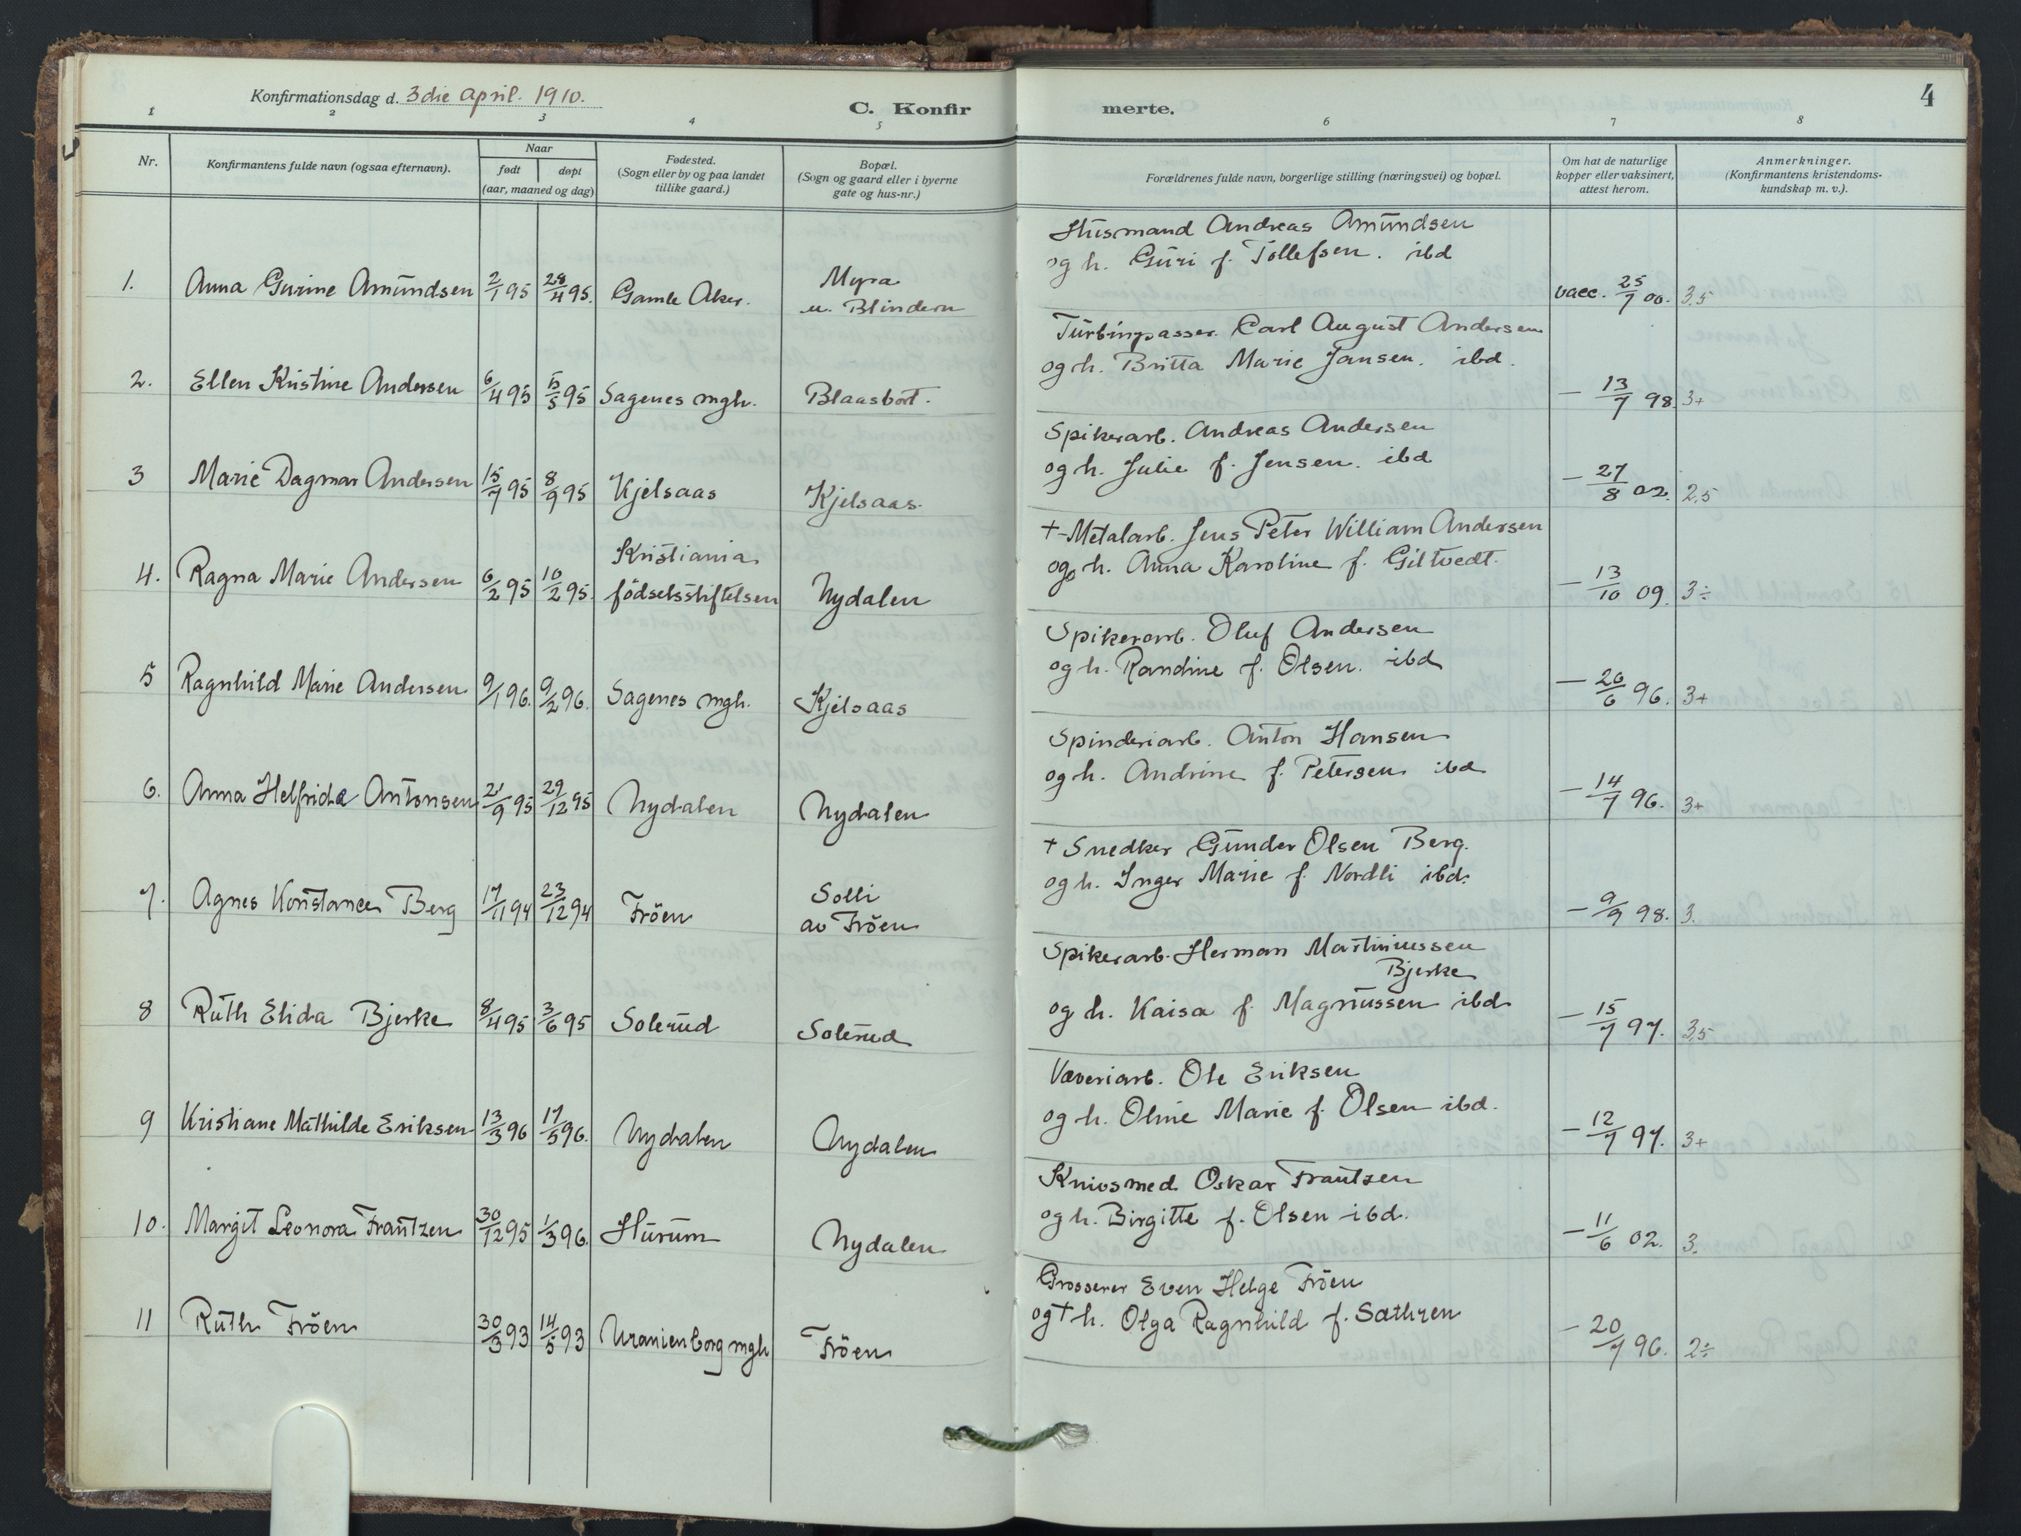 Konfirmationsdag d. 3die april. 1910.
C. Konfirmerte.
4
1 2 3 4 5 6 7 8
Nr.
Konfirmantens fulde navn (ogsaa efternavn).
Naar
født døpt
(aar, maaned og dag)
Fødested.
(Sogn eller by og paa landet
tillike gaard.)
Bopæl.
(Sogn og gaard eller i byerne
gate og hus-nr.)
Forældrenes fulde navn, borgerlige stilling (næringsvei) og bopæl.
Om hat de naturlige
kopper eller vaksinert,
attest herom.
Anmerkninger.
(Konfirmantens kristendoms-
kundskap m. v.).
Husmand Andreas Amundsen
og h. Guri f. Tollefsen. ibd
1. Anna Gurine Amundsen 2/1 95 28/4 95. Gamle Aker. Myra
u. Blindern
vacc. 25/7 00. 3,5
Turbinpasser. Carl August Andersen
og h. Britta Marie Jansen. ibd.
2. Ellen Kristine Andersen 6/4 95 5/5 95 Sagenes mgh. Blaasbort. – 13/7 98. 3+
Spikerarb. Andreas Andersen
og h. Julie f. Jensen. ibd
3 Marie Dagmar Andersen 15/7 95 8/9 95 Kjelsaas Kjelsaas. – 27/8 02. 2,5
+ Metalarb. Jens Peter William Andersen
og h. Anna Karoline f. Giltvedt.
4. Ragna Marie Andersen 6/2 95 10/2 95. Kristiania
födselsstiftelsen Nydalen – 13/10 09. 3÷
Spikerarb. Oluf Andersen
og h. Randine f. Olsen. ibd
5 Ragnhild Marie Andersen 9/1 96. 9/2 96. Sagenes mgh. Kjelsaas – 26/6 96. 3+
Spinderiarb. Anton Hansen
og h. Andrine f. Petersen ibd
6. Anna Helfrida Antonsen 21/9 95 29/12 95 Nydalen Nydalen – 14/7 96. 3+
+ Snedker Gunder Olsen Berg.
og h. Inger Marie f. Nordli ibd.
7. Agnes Konstance Berg 17/11 94 23/12 94 Fröen Solli
av Fröen
– 9/9 98. 3.
Spikerarb. Herman Martiniussen
Bjerke
og h. Kaisa f. Magnussen ibd
8 Ruth Elida Bjerke 8/4 95 3/6 95 Solerud Solerud – 15/7 97. 3,5
Væveriarb. Ole Eriksen
og h. Oline Marie f. Olsen ibd.
9 Kristiane Mathilde Eriksen 13/3 96 17/5 96. Nydalen Nydalen – 12/7 97. 3+
Knivsmed Oskar Frantzen
og h. Birgitte f. Olsen ibd.
10. Margit Leonora Frantzen 30/12 95 1/3 96. Hurum Nydalen – 11/6 02. 3.
Grosserer Even Helge Fröen
og + h. Olga Ragnhild f. Sæthren
11 Ruth Fröen 30/3 93 14/5 93 Uranienborg mgh Fröen – 20/7 96. 2÷